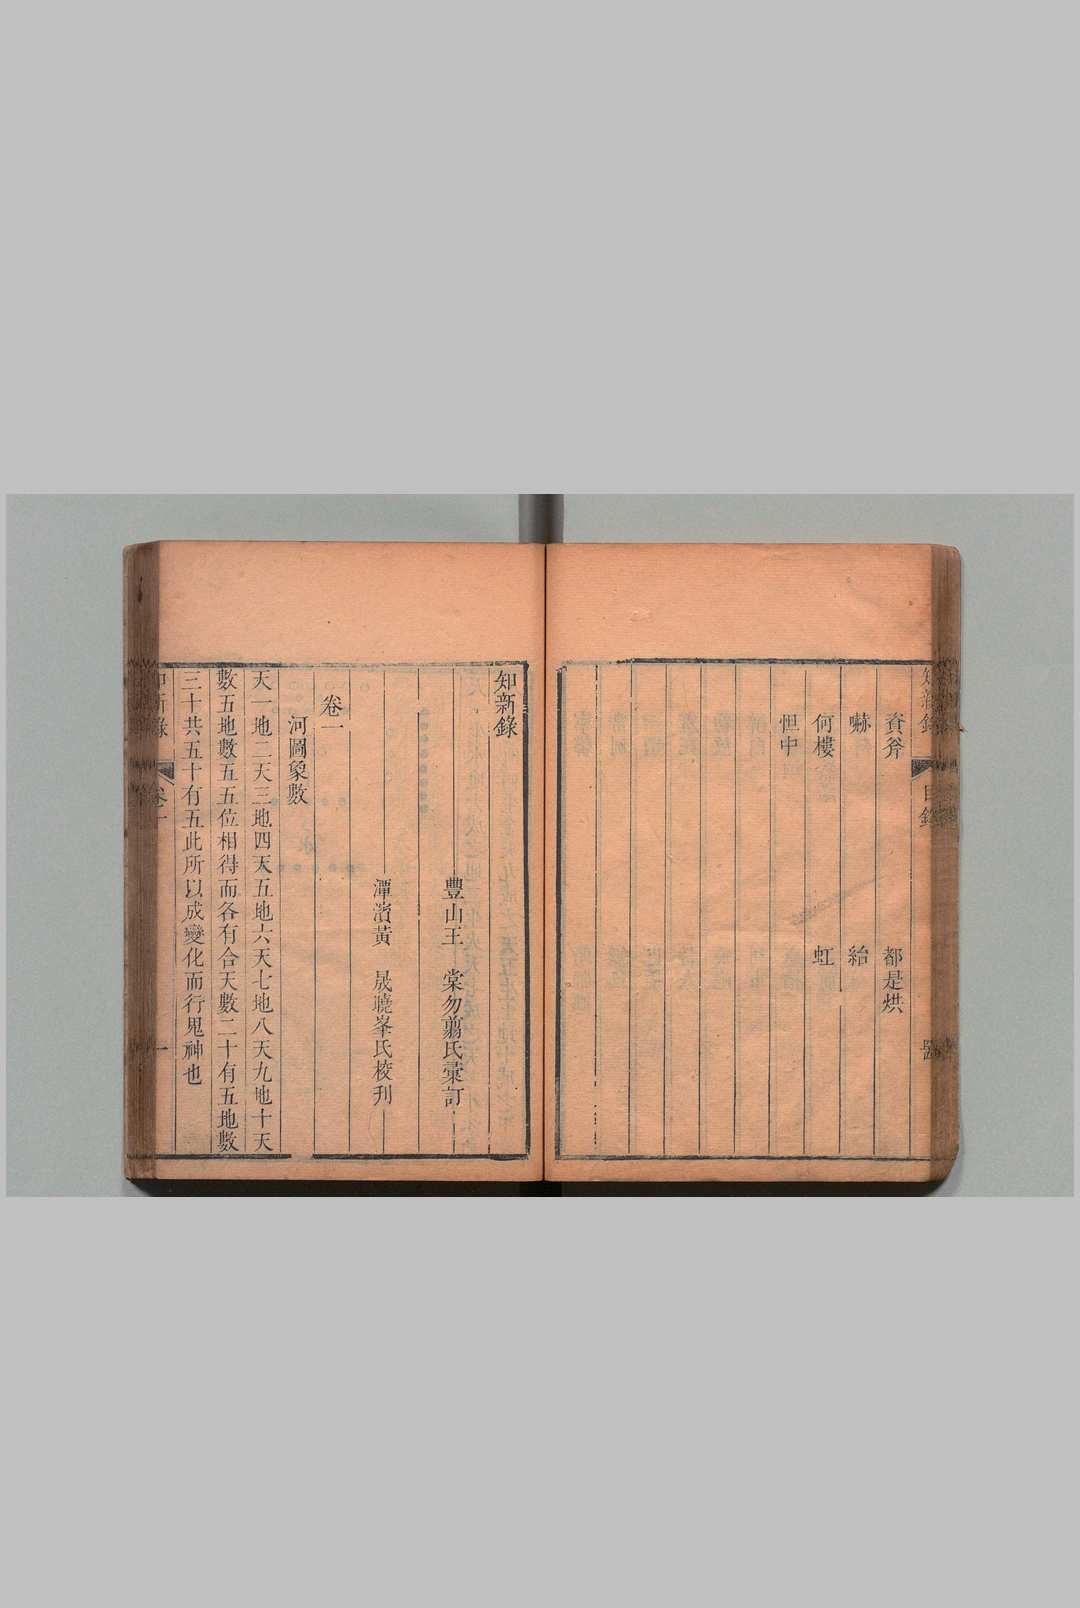 資斧
都是烘
嚇
紿
何樓
虹
怛中
知新錄
豐山王　棠勿翦氏彙訂
潭濱黃　晟曉峯氏校刊
卷一
河圖象數
天一地二天三地四天五地六天七地八天九地十天
數五地數五五位相得而各有合天數二十有五地數
三十共五十有五此所以成變化而行鬼神也
知新錄　卷一　一